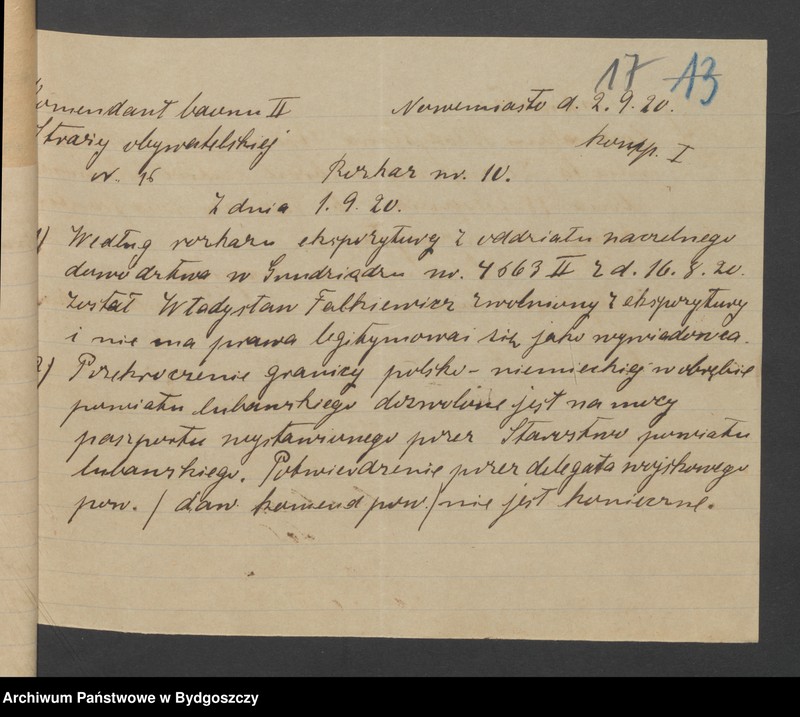 17 13
Komendant baonu II Nowemiasto d. 2.9.20.
Straży obywatelskiej komp. I
N. 16 Rozkaz nr. 10.
Z dnia 1.9.20.
1) Według rozkazu ekspozytury z oddziału naczelnego
dowództwa w Grudziądzu nr. 4663 II z d. 16.8.20.
został Władysław Falkiewicz zwolniony z ekspozytury
i nie ma prawa legitymować się jako wywiadowca.
2) Przekroczenie granicy polsko-niemieckiej w obrębie
powiatu lubawskiego dozwolone jest na mocy
paszportu wystawionego przez Starostwo powiatu
lubawskiego. Potwierdzenie przez delegata wojskowego
pow. / daw. komend pow. / nie jest konieczne.
Archiwum Państwowe w Bydgoszczy